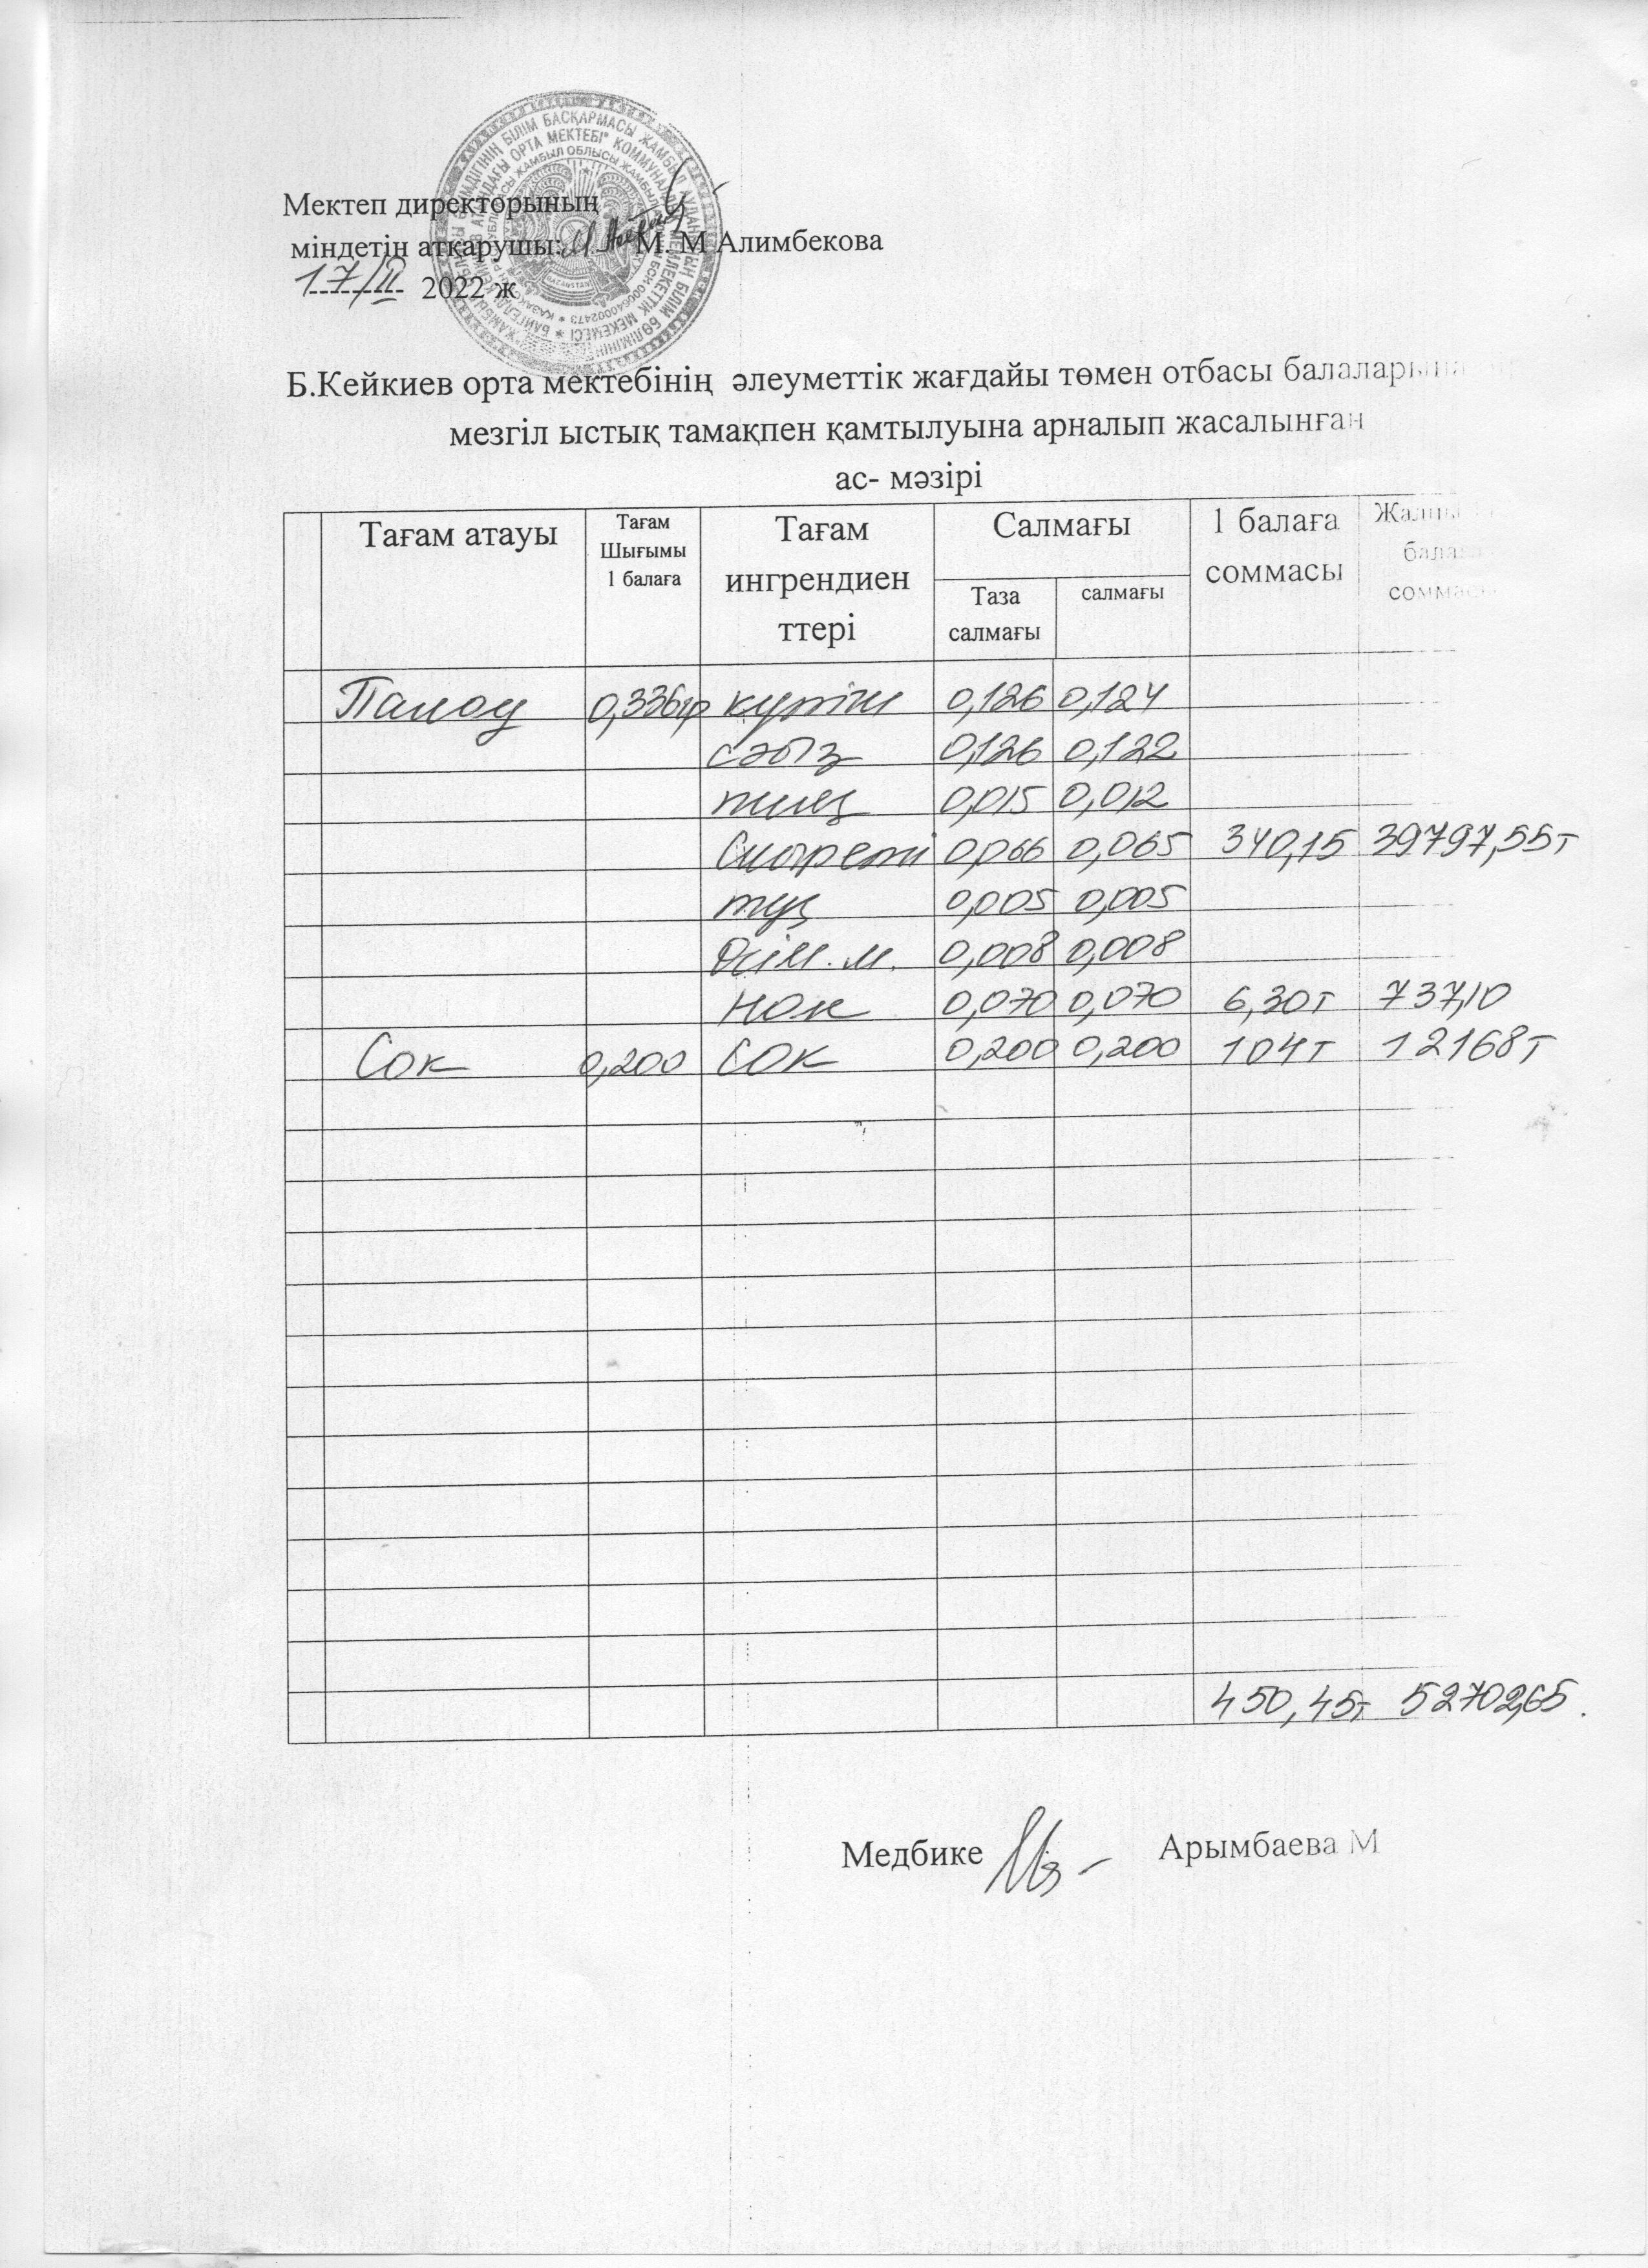 Мектеп директорының
міндетін атқарушы: М. М Алимбекова
17/II 2022 ж
Б.Кейкиев орта мектебінің әлеуметтік жағдайы төмен отбасы балаларына
мезгіл ыстық тамақпен қамтылуына арналып жасалынған
ас- мәзірі
Тағам атауы
Тағам
Шығымы
1 балаға
Тағам
ингрендиен
ттері
Салмағы
Таза
салмағы
салмағы
1 балаға
соммасы
Жалпы
соммасы
Палоу 0,336гр күріш 0,126 0,124
сәбіз 0,126 0,122
пияз 0,015 0,012
0,066 0,065 340,15 39797,55т
тұз 0,005 0,005
Өсім.м. 0,008 0,008
нан 0,070 0,070 6,30т 737,10
Сок 0,200 сок 0,200 0,200 104т 12168т
450,45т 52702,65.
Медбике Арымбаева М